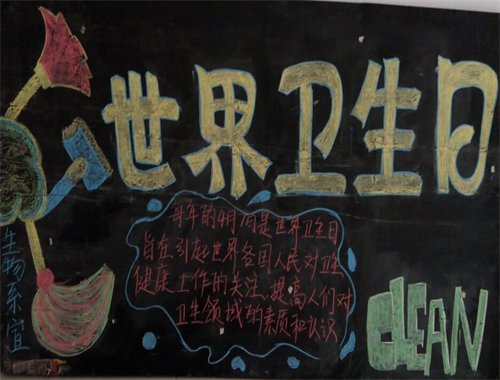 世界卫生日
每年的4月7日是世界卫生日
旨在引起世界各国人民对卫生
健康工作的关注,提高人们对
卫生领域的素质和认识
CLEAN
生物系宣